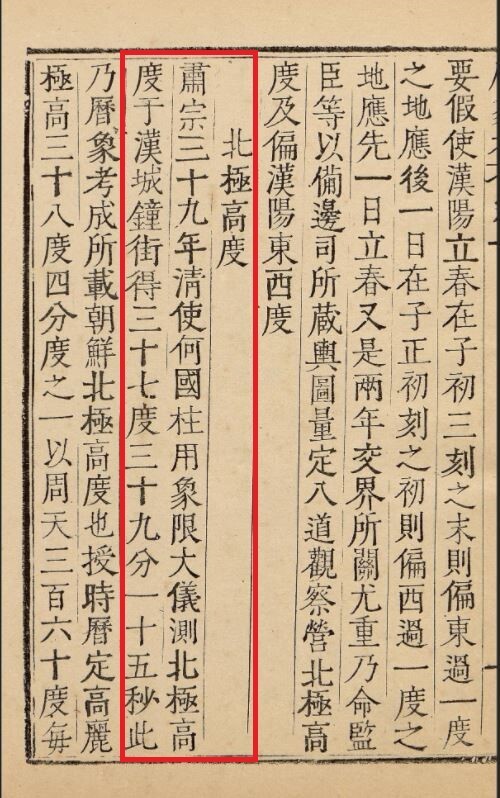 要假使漢陽立春在子初三刻之末則偏東過一度
之地應後一日在子正初刻之初則偏西過一度之
地應先一日立春又是兩年交界所關尤重乃命監
臣等以備邊司所蔵輿圖量定八道觀察營北極高
度及偏漢陽東西度
北極高度
肅宗三十九年清使何國柱用象限大儀測北極高
度于漢城鐘街得三十七度三十九分一十五秒此
乃曆象考成所載朝鮮北極高度也授時曆定高麗
極高三十八度四分度之一以周天三百六十度每